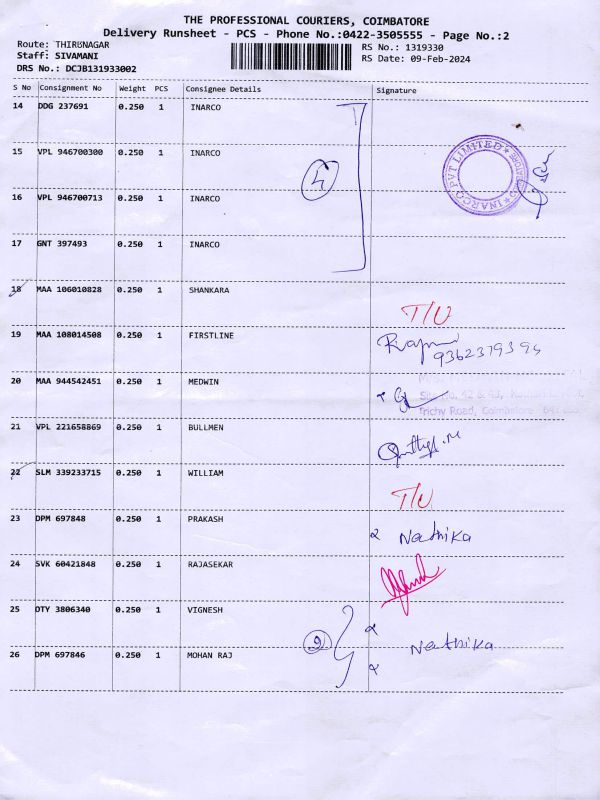 THE PROFESSIONAL COURIERS, COIMBATORE
Delivery Runsheet - PCS - Phone No.:0422-3505555 - Page No.:2
Route: THIRUNAGAR
Staff: SIVAMANI
DRS No.: DCJB131933002
RS No.: 1319330
RS Date: 09-Feb-2024
S No Consignment No Weight PCS Consignee Details Signature
14 DDG 237691 0.250 1 INARCO
15 VPL 946700300 0.250 1 INARCO
INARCO PVT LIMITED
4
16 VPL 946700713 0.250 1 INARCO
17 GNT 397493 0.250 1 INARCO
18 MAA 106010828 0.250 1 SHANKARA
T/U
19 MAA 108014508 0.250 1 FIRSTLINE
9362379394
20 MAA 944542451 0.250 1 MEDWIN
Trichy Road, Coimbatore
21 VPL 221658869 0.250 1 BULLMEN
22 SLM 339233715 0.250 1 WILLIAM
T/U
23 DPM 697848 0.250 1 PRAKASH
Nathika
24 SVK 60421848 0.250 1 RAJASEKAR
25 DTY 3806340 0.250 1 VIGNESH
2 Nathika
26 DPM 697846 0.250 1 MOHAN RAJ